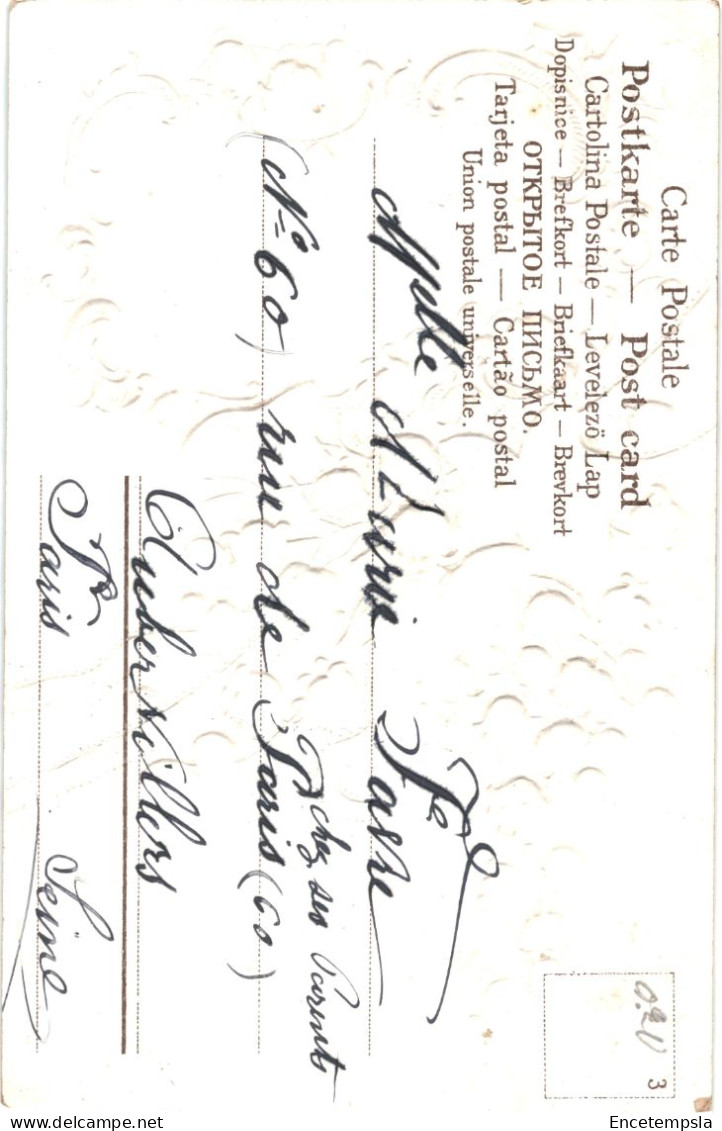 Carte Postale
Postkarte — Post card
Cartolina Postale — Levelezö Lap
Dopisnice — Brefkort — Briefkaart — Brevkort
ОТКРЫТОЕ ПИСЬМО.
Tarjeta postal — Cartão postal
Union postale universelle.
3
0.20
Melle Maria Favre
chez ses Parents
(No 60) rue de Paris (60)
Aubervillers
Paris Seine
Encetempsla